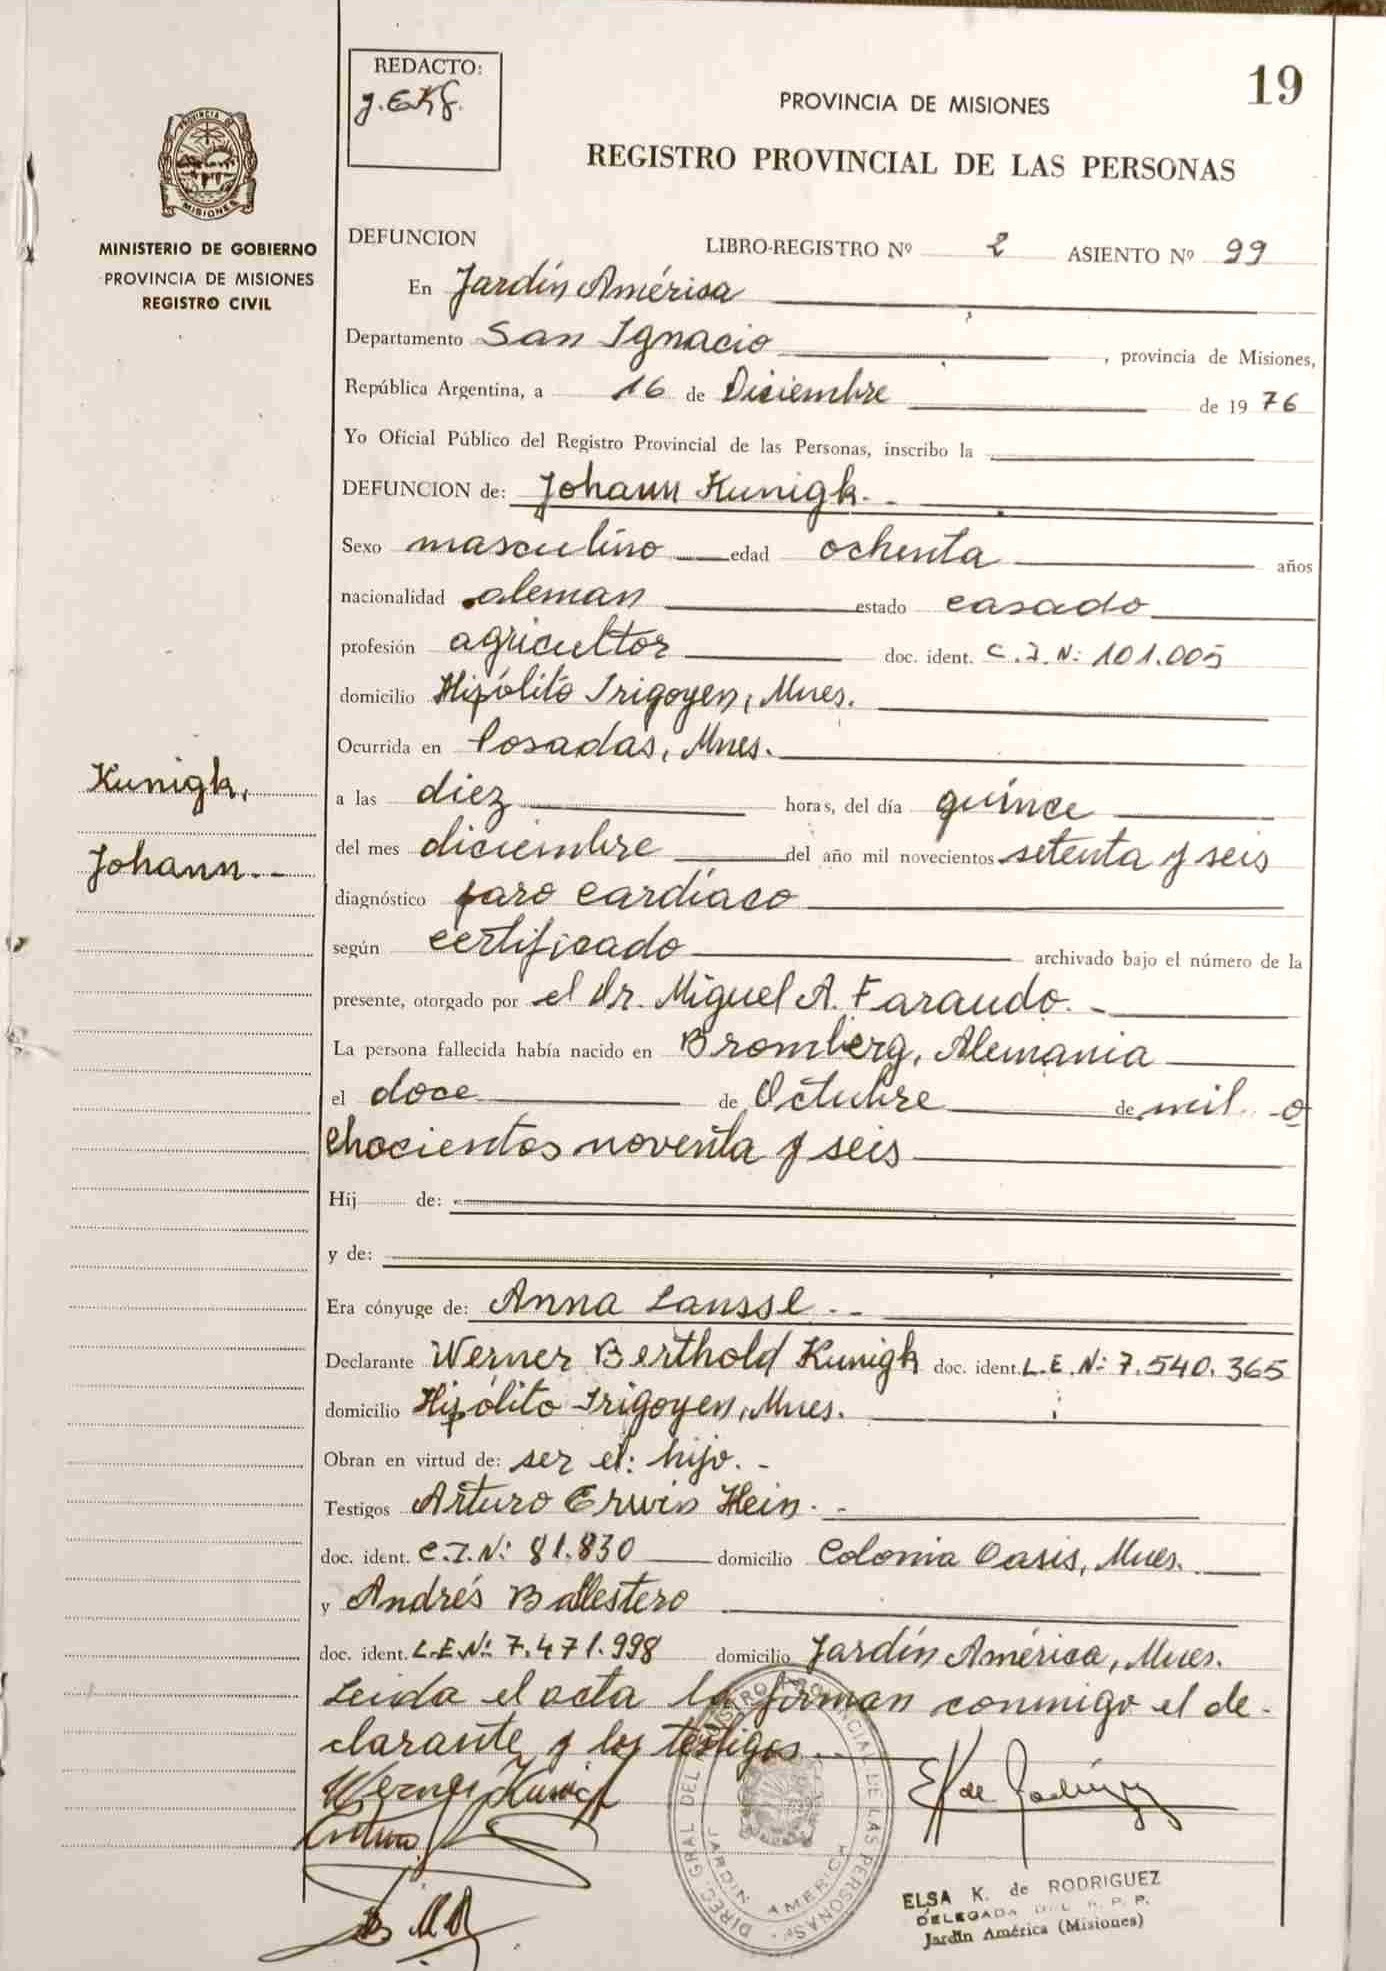 REDACTO:
19
PROVINCIA DE MISIONES
REGISTRO PROVINCIAL DE LAS PERSONAS
PROVINCIA DE
MISIONES
MINISTERIO DE GOBIERNO
PROVINCIA DE MISIONES
REGISTRO CIVIL
DEFUNCION LIBRO-REGISTRO Nº 2 ASIENTO Nº 99
En Jardín América
Departamento San Ignacio, provincia de Misiones,
República Argentina, a 16 de Diciembre de 1976
Yo Oficial Público del Registro Provincial de las Personas, inscribo la
DEFUNCION de: Johann Kunigk.-
Sexo masculino edad ochenta años
nacionalidad aleman estado casado
profesión agricultor doc. ident. C.I.N: 101.005
domicilio Hipólito Irigoyen, Mnes.
Ocurrida en Posadas, Mnes.
Kunigk,
a las diez horas, del día quince
Johann.--
del mes diciembre del año mil novecientos setenta y seis
diagnóstico paro cardíaco
según certificado archivado bajo el número de la
presente, otorgado por el Dr. Miguel A. Faraudo.-
La persona fallecida había nacido en Bromberg, Alemania
el doce de Octubre de mil o
chocientos noventa y seis
Hij de:
y de:
Era cónyuge de: Anna Lansse.--
Declarante Werner Berthold Kunigk doc. ident. L.E.N: 7.540.365
domicilio Hipólito Irigoyen, Mnes.
Obran en virtud de: ser el: hijo.-
Testigos Arturo Erwin Hein.-
doc. ident. C.I.N: 81.830 domicilio Colonia Oasis, Mnes.
y Andrés Ballestero
doc. ident. L.E.N: 7.471.998 domicilio Jardín América, Mnes.
Leida el acta la firman conmigo el de-
clarante y los testigos
DIREC. GRAL DEL REGISTRO PROVINCIAL DE LAS PERSONAS
JARDIN AMERICA
Werner Kunigk
Arturo
ELSA K. de RODRIGUEZ
DELEGADA DEL R. P. P.
Jardín América (Misiones)